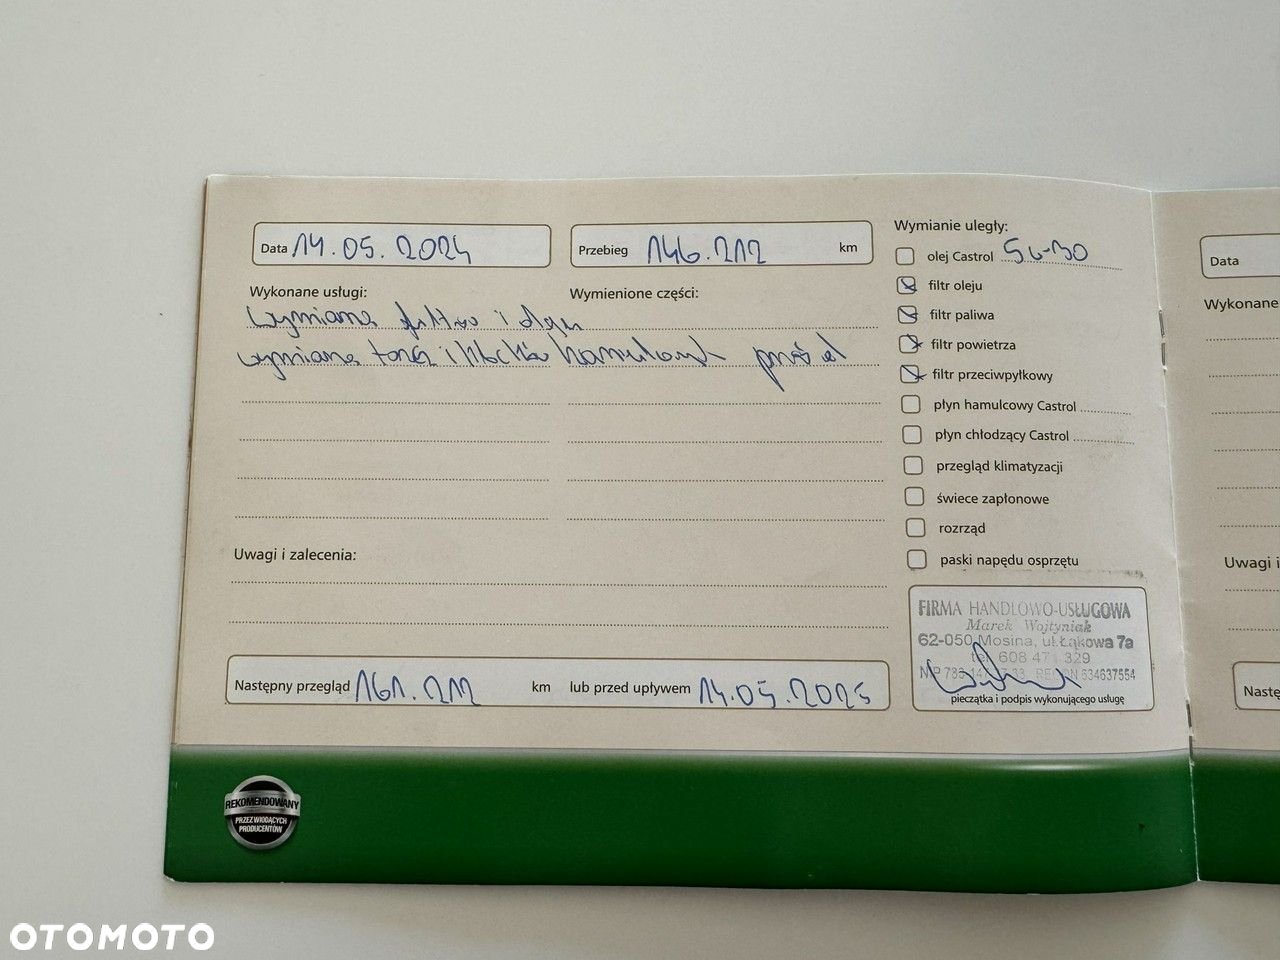 Data 14.05.2024
Przebieg 146.212 km
Wykonane usługi:
Wymienione części:
wymiana filtrów i oleju
wymiana tarcz i klocków hamulcowych przód
Uwagi i zalecenia:
Następny przegląd 161.212 km lub przed upływem 14.05.2025
Wymianie uległy:
olej Castrol 5w-30
filtr oleju
filtr paliwa
filtr powietrza
filtr przeciwpyłkowy
płyn hamulcowy Castrol
płyn chłodzący Castrol
przegląd klimatyzacji
świece zapłonowe
rozrząd
paski napędu osprzętu
FIRMA HANDLOWO-USŁUGOWA
Marek Wojtyniak
62-050 Mosina, ul.Łąkowa 7a
tel. 608 47 329
NIP REGON 634637554
pieczątka i podpis wykonującego usługę
REKOMENDOWANY
PRZEZ WIODĄCYCH
PRODUCENTÓW
Data
Wykonane
Uwagi i
Nastę
OTOMOTO